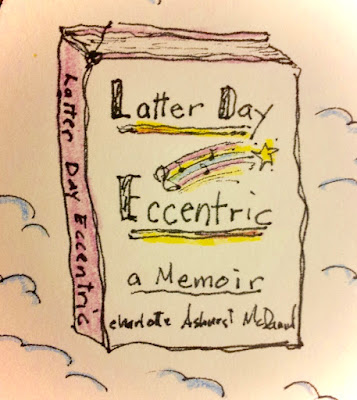 Latter Day Eccentric
Latter Day
Eccentric
a Memoir
Charlotte Ashurst McDaniel